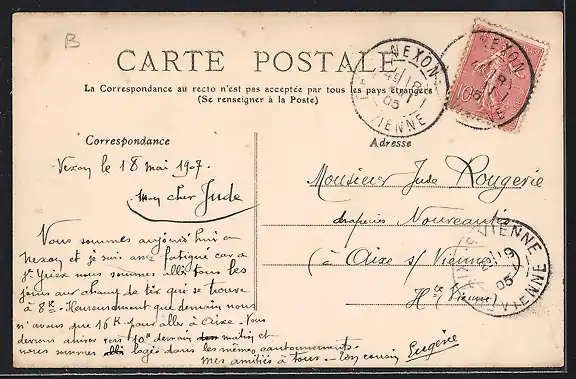 B
CARTE POSTALE
La Correspondance au recto n'est pas acceptée par tous les pays étrangers
(Se renseigner à la Poste)
NEXON
05
VIENNE
NEXON
05
Correspondance
Adresse
Nexon le 18 mai 1907.
Mon cher Jude
Vous sommes aujourd'hui a
Nexon et je suis assez fatigué car a
St Yrieix nous sommes allé tous les
jours aux champ de tir qui se trouve
à 8 K. Heureusement que demain nous
n'avons que 16 K pour aller à Aixe. Nous
devrons arriver vers 10h demain matin et
nous sommes logés dans les mêmes cantonnements.
Mes amitiés à tous. Ton cousin Eugène
Monsieur Jude Rougerie
draperies Nouveautés
(à Aixe s/ Vienne
Hte (Vienne)
VIENNE
05
VIENNE